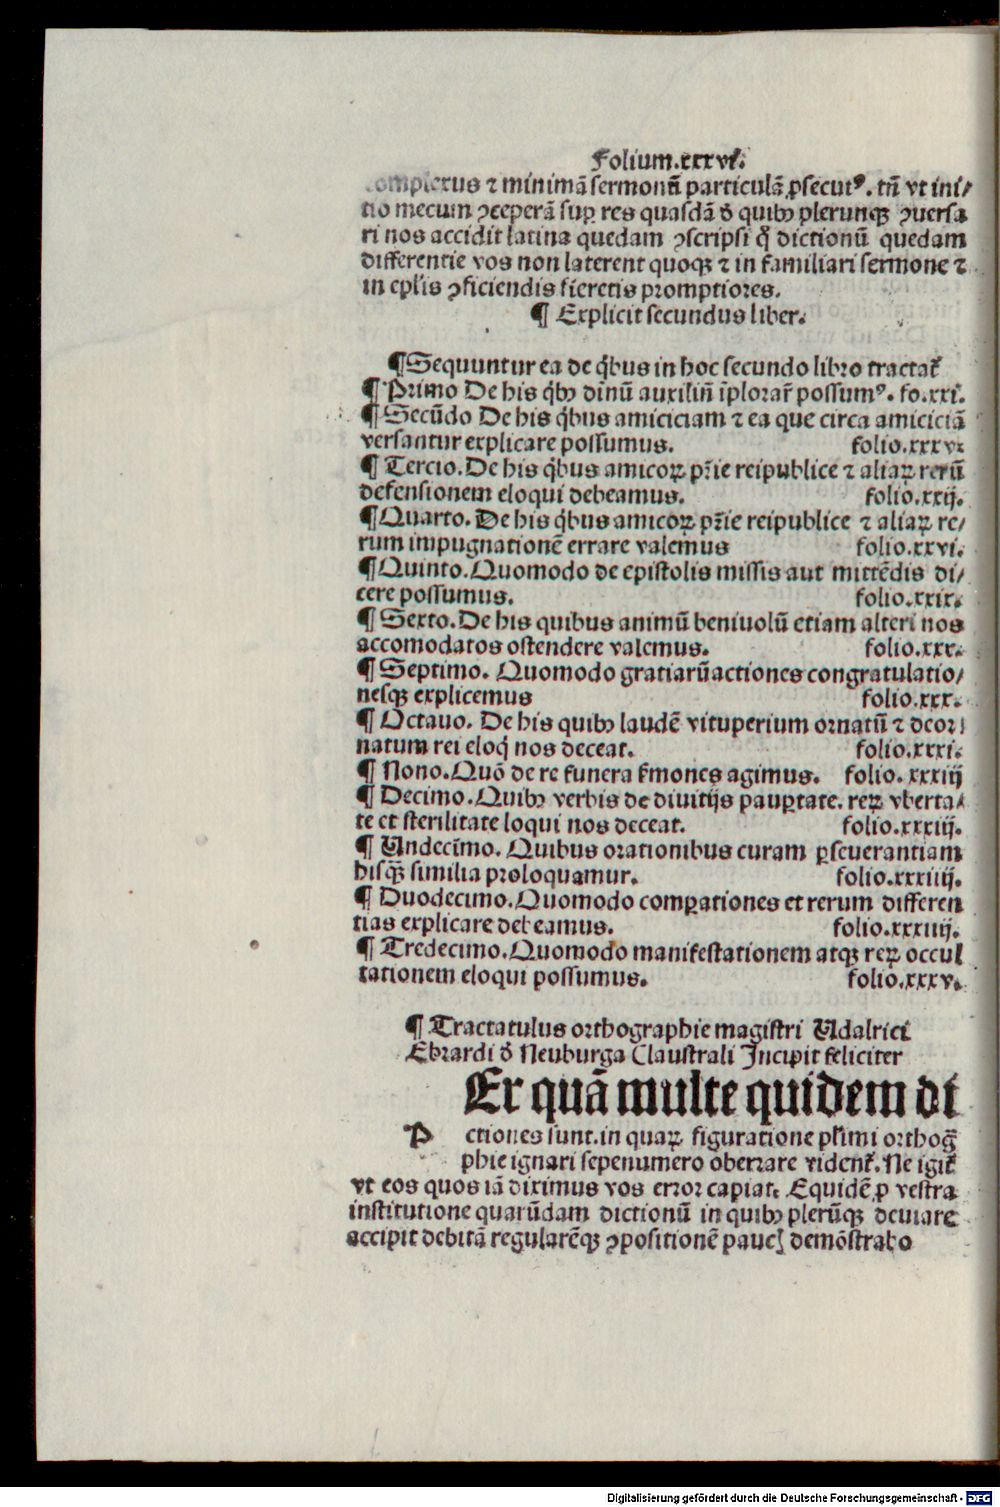 Folium.xxxvi.
complexus ⁊ minimā sermonū particulā ꝓsecutꝰ. tn̄ vt ini/
tio mecum ꝯceperā suꝑ res quasdā d̕ quibꝫ plerunqꝫ ꝯuersa
ri nos accidit latina quedam ꝯscripsi q̄ dictionū quedam
differentie vos non laterent quoqꝫ ⁊ in familiari sermone ⁊
in ep̄lis ꝯficiendis fieretis promptiores.
¶ Explicit secundus liber.
¶Sequuntur ea de q̇bus in hoc secundo libro tractat̄
¶ Primo De his q̇bꝫ diīnū auxiliū īplorar̄ possumꝰ. fo.xxi.
¶ Secūdo De his q̇bus amiciciam ⁊ ea que circa amiciciā
versantur explicare possumus. folio.xxxvi
¶ Tercio. De his q̇bus amicoꝝ pr̄ie reipublice ⁊ aliaꝝ rerū
defensionem eloqui debeamus. folio.xxij.
¶Quarto. De his q̇bus amicoꝝ pr̄ie reipublice ⁊ aliaꝝ re/
rum impugnationē errare valemus folio.xxvi.
¶Quinto. Quomodo de epistolis missis aut mittēdis di/
cere possumus. folio.xxix.
¶ Sexto. De his quibus animū beniuolū etiam alteri nos
accomodatos ostendere valemus. folio.xxx.
¶ Septimo. Quomodo gratiarūactiones congratulatio/
nesqꝫ explicemus folio.xxx.
¶ Octauo. De his quibꝫ laudē vituperium ornatū ⁊ deor/
natum rei eloq̇ nos deceat. folio.xxxi.
¶ Nono. Quō de re funera s̄mones agimus. folio. xxxiij
¶ Decimo. Quibꝫ verbis de diuitijs pauꝑtate. reꝝ vberta/
te et sterilitate loqui nos deceat. folio.xxxiij.
¶ Undecīmo. Quibus orationibus curam ꝑseuerantiam
hisqꝫ similia proloquamur. folio.xxxiiij.
¶ Duodecimo. Quomodo comꝑationes et rerum differen
tias explicare debeamus. folio.xxxiiij.
¶ Tredecimo. Quomodo manifestationem atqꝫ reꝝ occul
tationem eloqui possumus. folio.xxxv.
¶ Tractatulus orthographie magistri Udalrici
Ebrardi d̕ Neuburga Claustrali Incipit feliciter
Er quā multe quidem di
P ctiones sunt. in quaꝝ figuratione pl̄imi orthog̅
phie ignari sepenumero oberrare vident̄. Ne igit̄
vt eos quos iā diximus vos error capiat. Equidē ꝓ vestra
institutione quarūdam dictionū in quibꝫ plerūqꝫ deuiare
accipit debitā regularēqꝫ ꝯpositionē paucꝭ demōstrabo
Digitalisierung gefördert durch die Deutsche Forschungsgemeinschaft - DFG